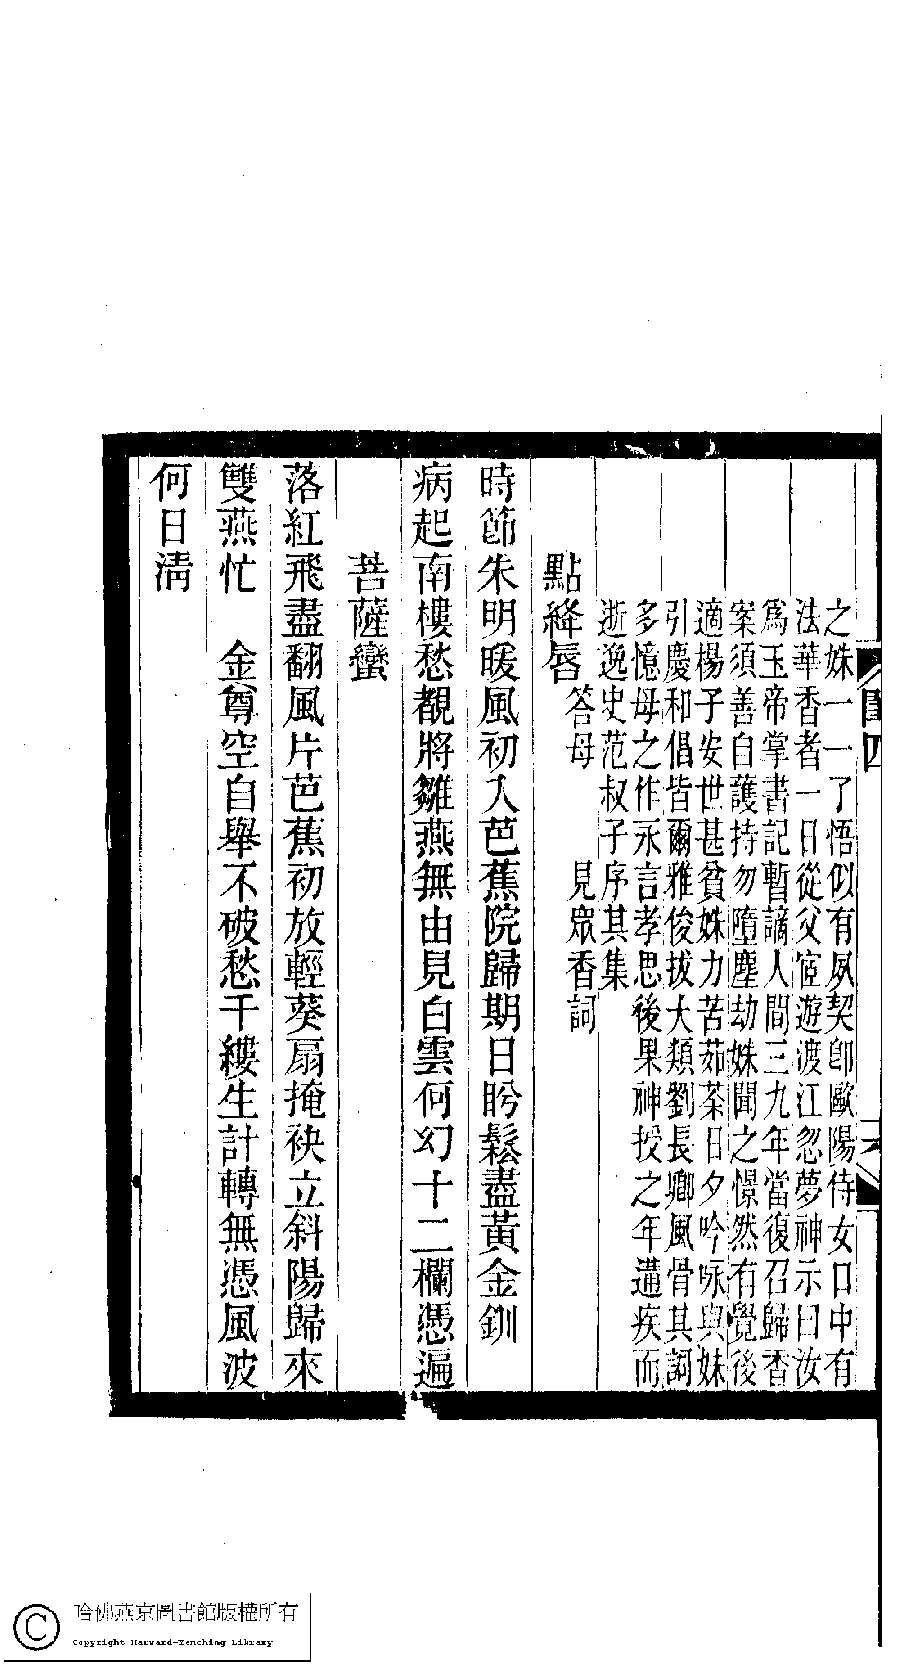 之姝一一了悟似有夙契卽歐陽侍女口中有
法華香者一日從父宦遊渡江忽夢神示曰汝
爲玉帝掌書記暫謫人間三九年當復召歸香
案須善自護持勿墮塵劫姝聞之憬然有覺後
適楊子安世甚貧姝力苦茹荼日夕吟咏與妹
引慶和倡皆爾雅俊拔大類劉長卿風骨其詞
多憶母之作永言孝思後果神授之年遘疾而
逝逸史范叔子序其集
點絳唇 答母 見眾香詞
時節朱明暖風初入芭蕉院歸期日盻鬆盡黃金釧
病起南樓愁覩將雛燕無由見白雲何幻十二欄憑遍
菩薩蠻
落紅飛盡翻風片芭蕉初放輕葵扇掩袂立斜陽歸來
雙燕忙 金尊空自舉不破愁千縷生計轉無憑風波
何日淸
閨四
哈佛燕京圖書館版權所有
Copyright Harvard-Yenching Library